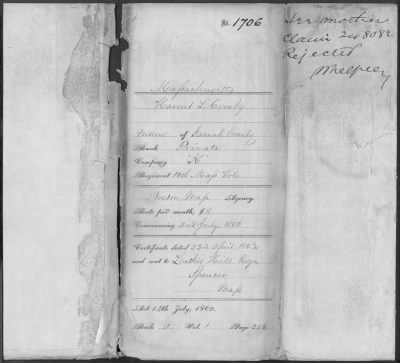 No. 1706
See mother
claim 248082
Rejected
Massachusetts
Harriet L Crosby
Widow of Isaiah Crosby
Rank Private
Company K
Regiment 10th Mass Vols
Boston Mass Agency.
Rate per month, $8
Commencing 2nd July, 1862
Certificate dated 23d April 1863
and sent to Luther Hill Esqr
Spencer
Mass
Act 14th July, 1862.
Book A Vol. 1 Page 242